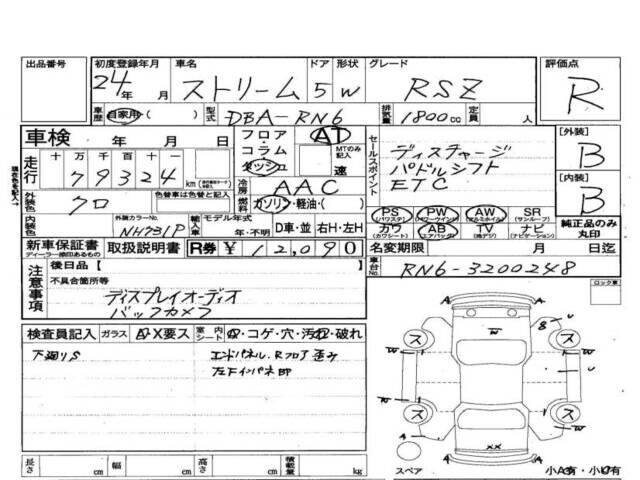 出品番号 初度登録年月 車名 ドア 形状 グレード 評価点
24年 月 ストリーム 5 W RSZ R
車歴 自家用・( ) 型式 DBA-RN6 排気量 1800cc 定員 人
車検 年 月 日 フロア コラム ダッシュ AT MTのみ記入 速 セールスポイント ディスチャージ [外装] B
走行 十 万 千 百 十 一 パドルシフト
79324 km 冷房 AAC ETC [内装] B
外装色 クロ 色替車は色替と記入 燃料 ガソリン・軽油・( )
PS (パワステ) PW (パワーウィンド) AW (アルミホイル) SR (サンルーフ) 純正品のみ丸印
内装色 外装カラーNo. NH731P 輸入車 モデル年式 年・不明 D車・並 右H・左H カワ (カワシート) AB (エアバック) TV (地デジ) ナビ (ナビゲーション)
新車保証書 取扱説明書 R券 ¥ 12,090 名変期限 月 日迄
注意事項 後日品 [ ] 車台No. RN6-3200248
不具合箇所等 ロック車
ディスプレイオーディオ
バックカメラ
検査員記入 ガラス A・X要ス 室内シート
下廻りS エンドパネル、Rフロア歪み
左Fインパネ即
長さ cm 幅 cm 高さ cm 積載量 kg スペア 小A有・小U有
A A
A A
U
8
ス ス
U
W W
ス ス
W W
XX
A A